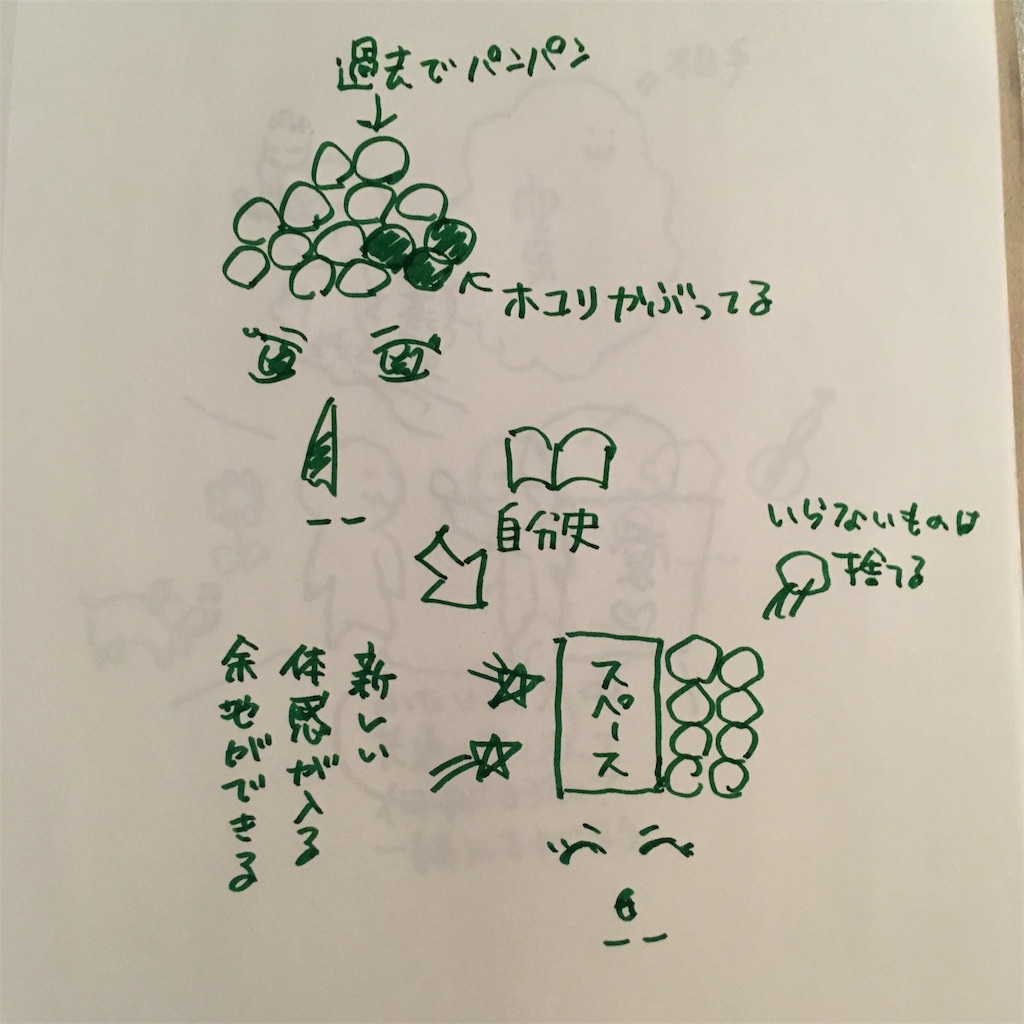 過去でパンパン
ホコリかぶってる
自分史
いらないものは
捨てる
スペース
新しい
体感が入る
余地ができる